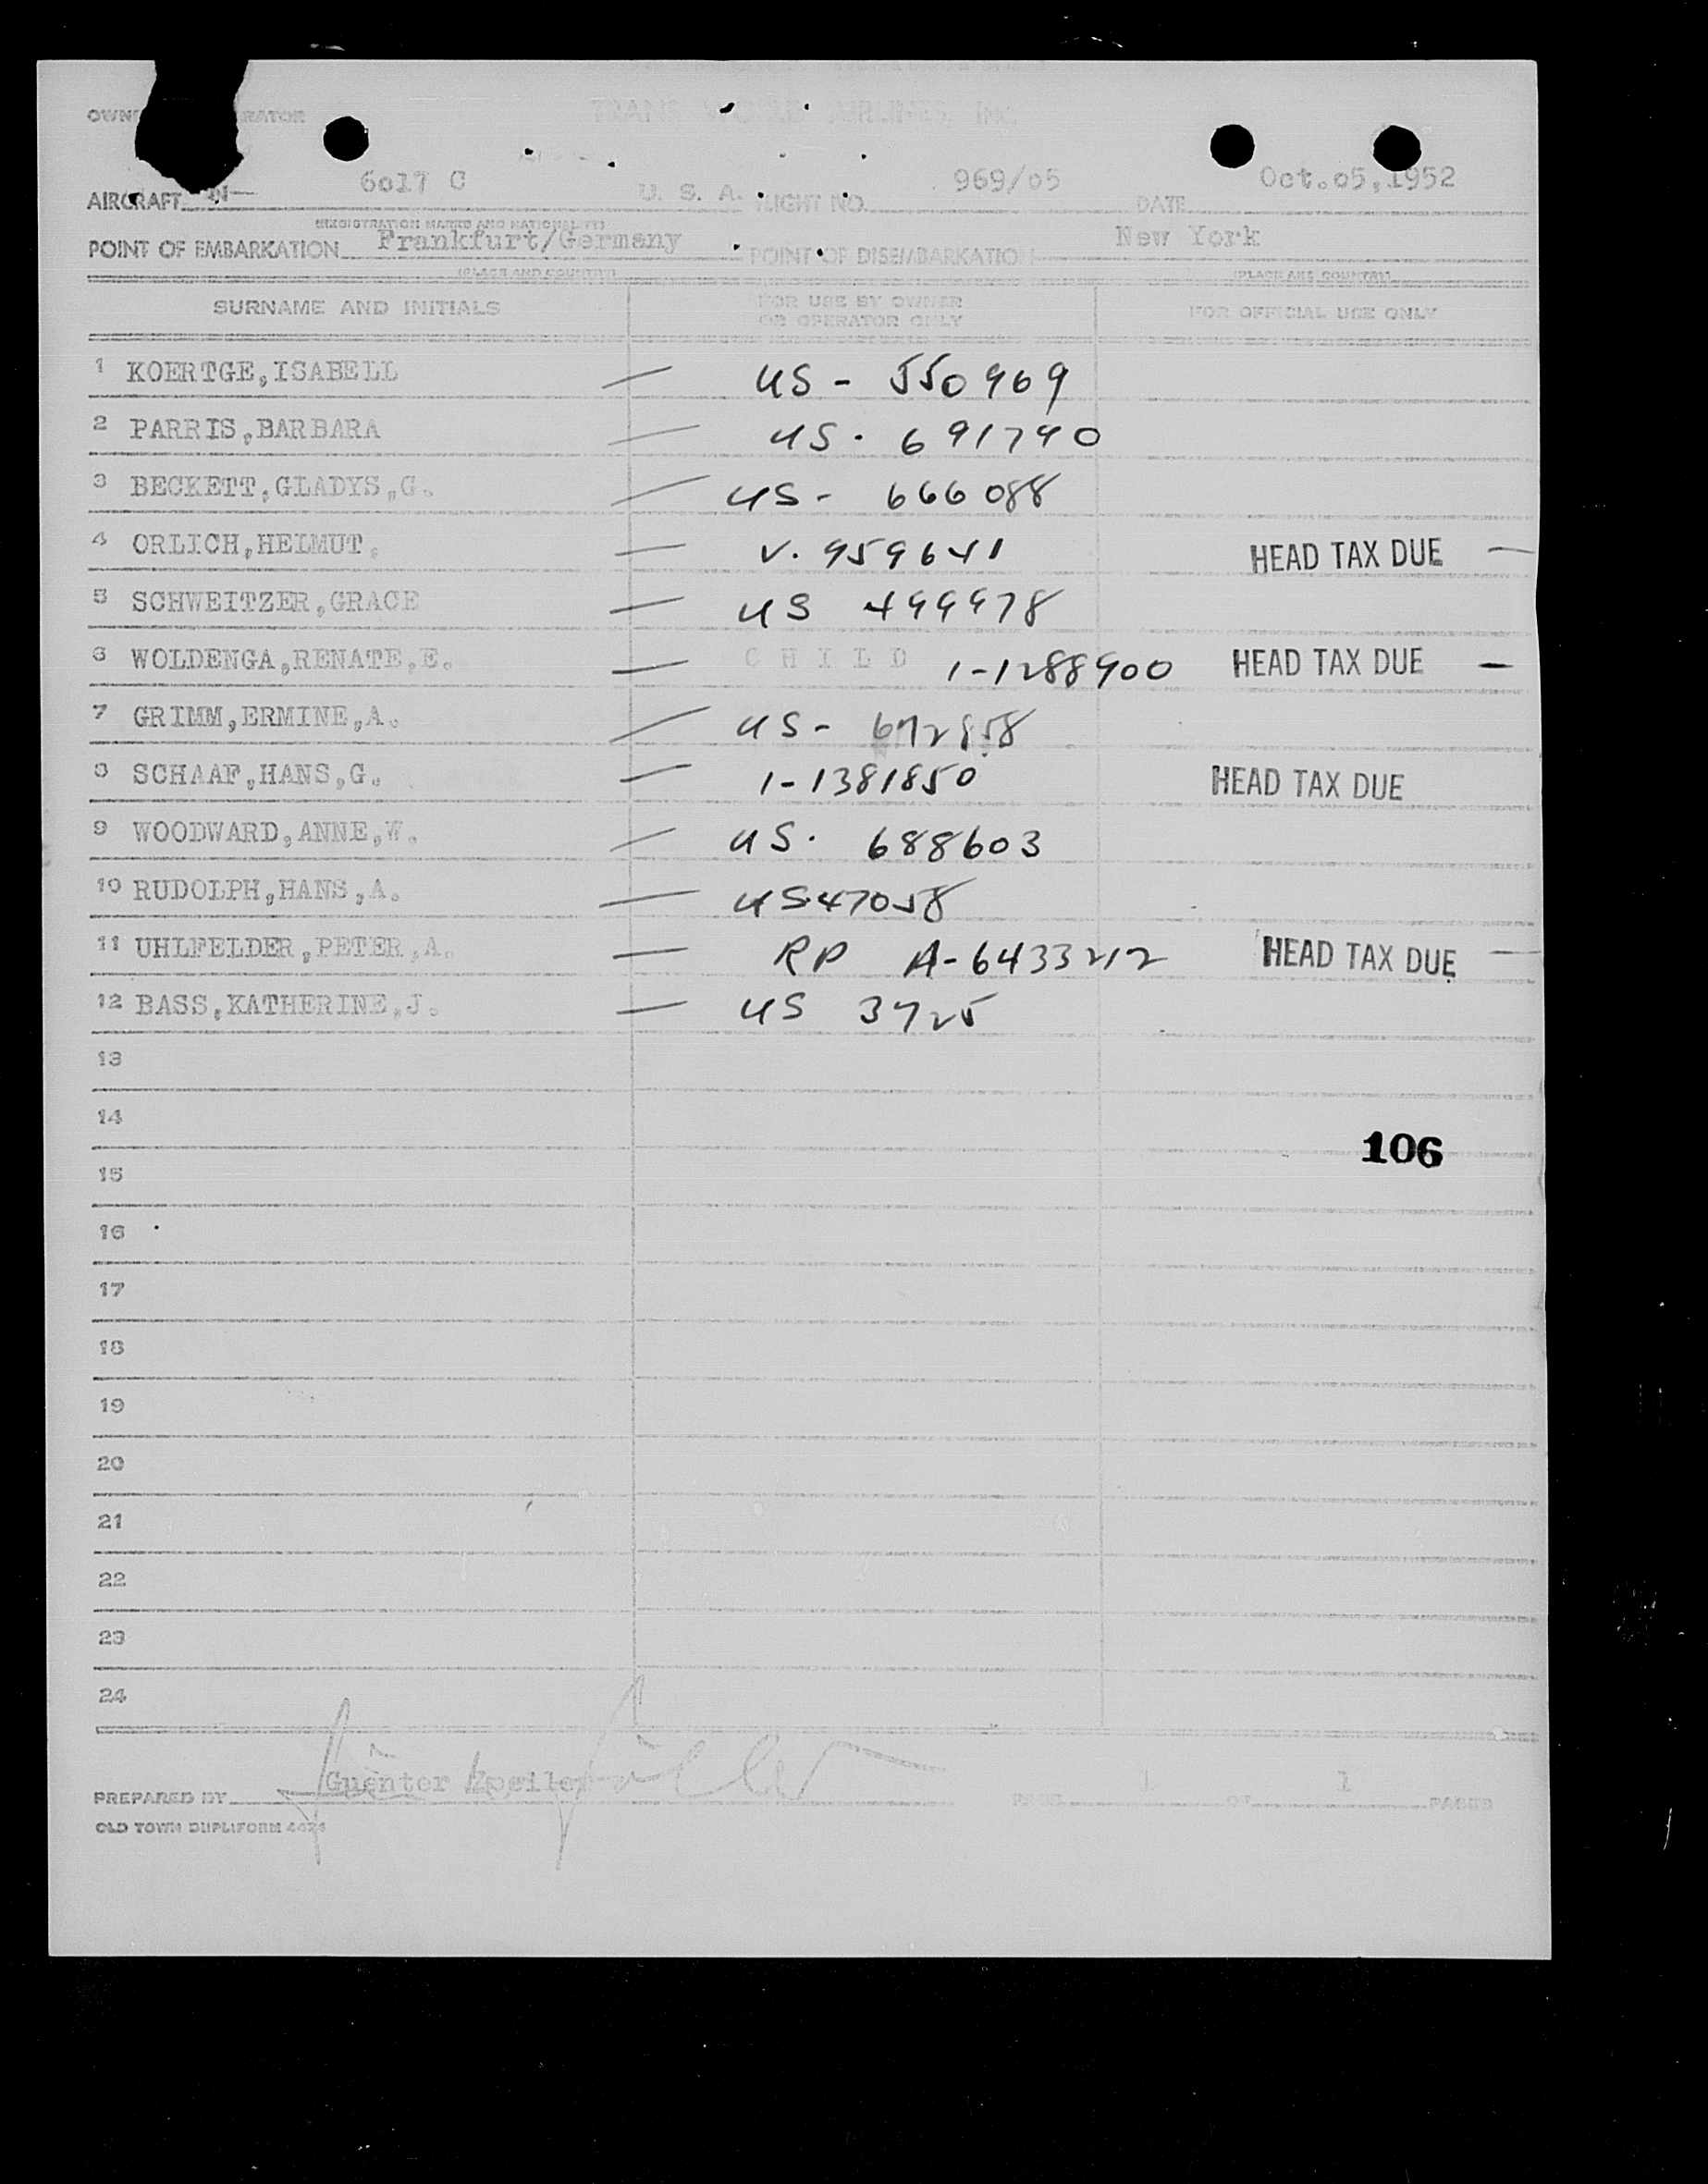 TRANS WORLD AIRLINES, INC.
AIRCRAFT N- 6017 C U. S. A. FLIGHT NO. 969/05 DATE Oct.05,1952
(REGISTRATION MARKS AND NATIONALITY)
POINT OF EMBARKATION Frankfurt/Germany POINT OF DISEMBARKATION New York
(PLACE AND COUNTRY) (PLACE AND COUNTRY)
SURNAME AND INITIALS FOR USE BY OWNER OR OPERATOR ONLY FOR OFFICIAL USE ONLY
1 KOERTGE,ISABELL — US - 550969
2 PARRIS,BARBARA — US. 691790
3 BECKETT,GLADYS,G. — US- 666088
4 ORLICH,HELMUT, — V. 959641 HEAD TAX DUE —
5 SCHWEITZER,GRACE — US 499978
6 WOLDENGA,RENATE,E. — C H I L D 1-1288900 HEAD TAX DUE —
7 GRIMM,ERMINE,A. — US- 672858
8 SCHAAF,HANS,G. — 1-1381850 HEAD TAX DUE
9 WOODWARD,ANNE,W. — US. 688603
10 RUDOLPH,HANS,A. — US47058
11 UHLFELDER,PETER,A. — RP A-6433212 HEAD TAX DUE —
12 BASS,KATHERINE,J. — US 3725
13
14
106
15
16
17
18
19
20
21
22
23
24
PREPARED BY Guenter PAGE 1 OF 1 PAGES
OLD TOWN DUPLIFORM